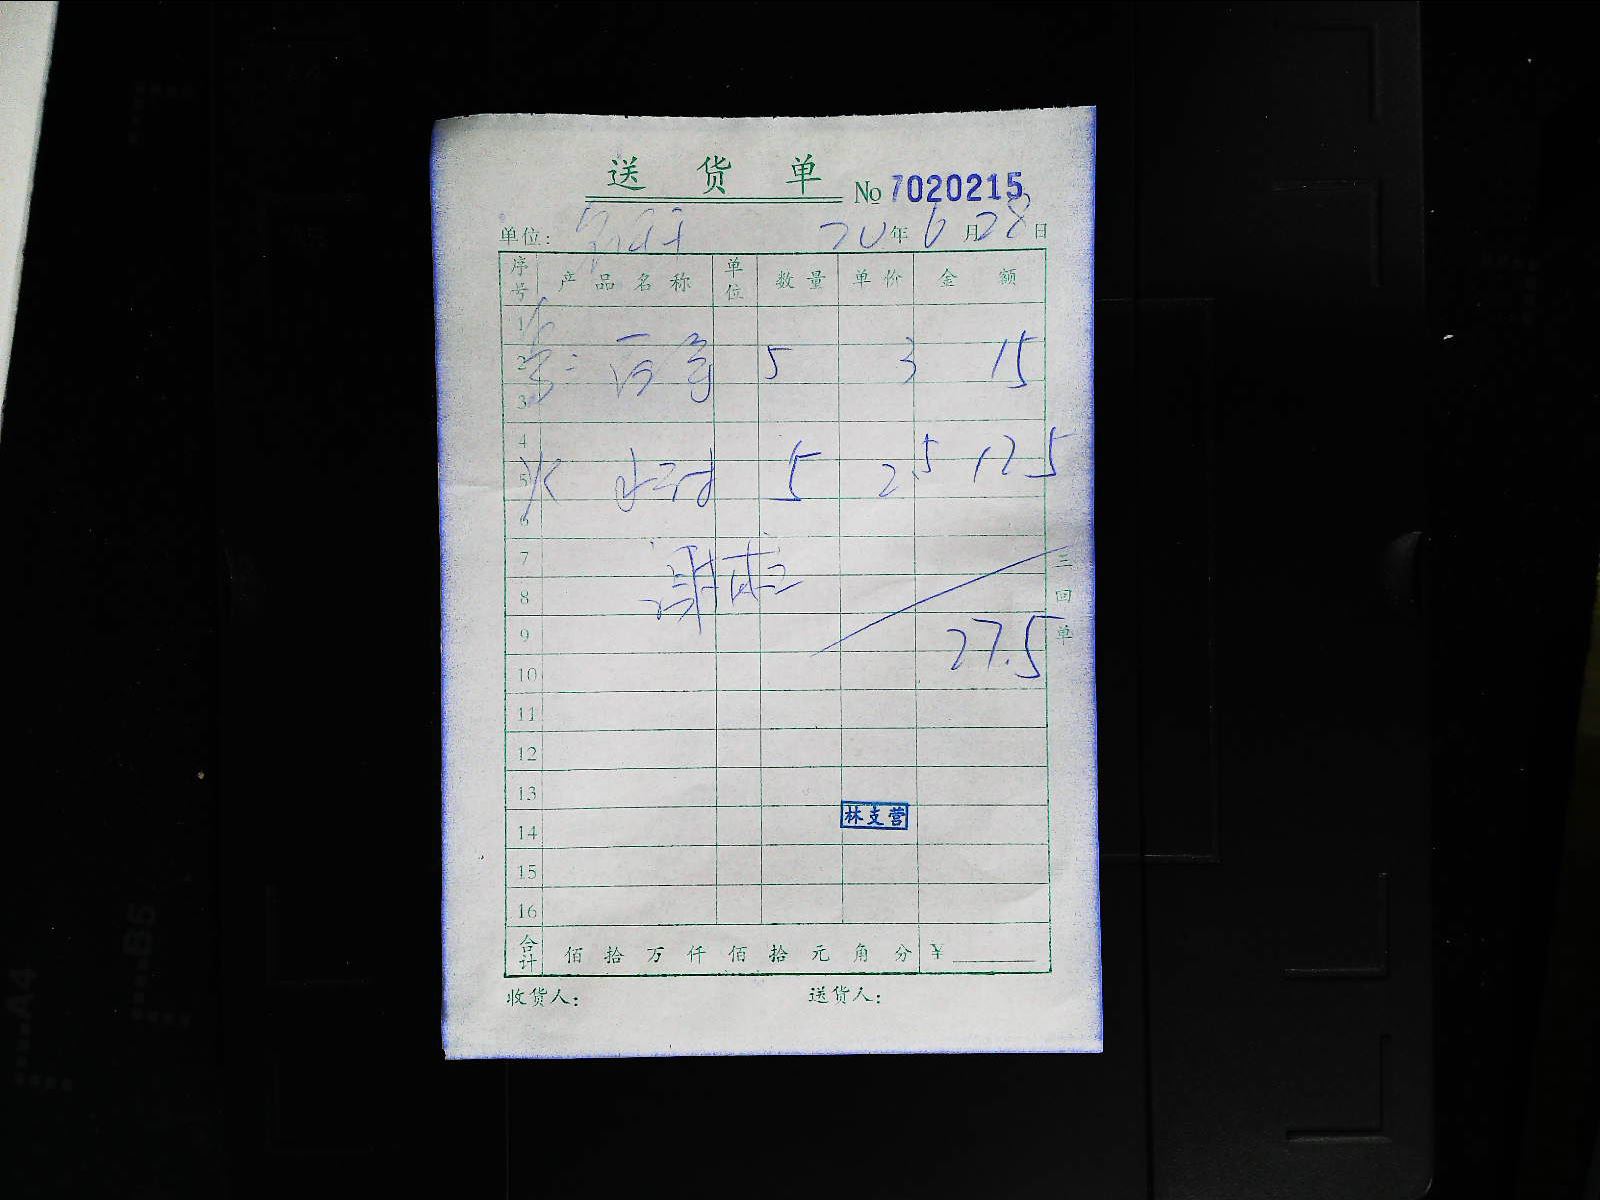 送 货 单 No 7020215
单位: 20 年 6 月 28 日
序号 产品名称 单位 数量 单价 金额
1
2 5 3 15
3
4
5 5 2.5 12.5
6
7
8
9 27.5
10
11
12
13
14 林支营
15
16
合计 佰 拾 万 仟 佰 拾 元 角 分 ¥
收货人: 送货人:
三回单